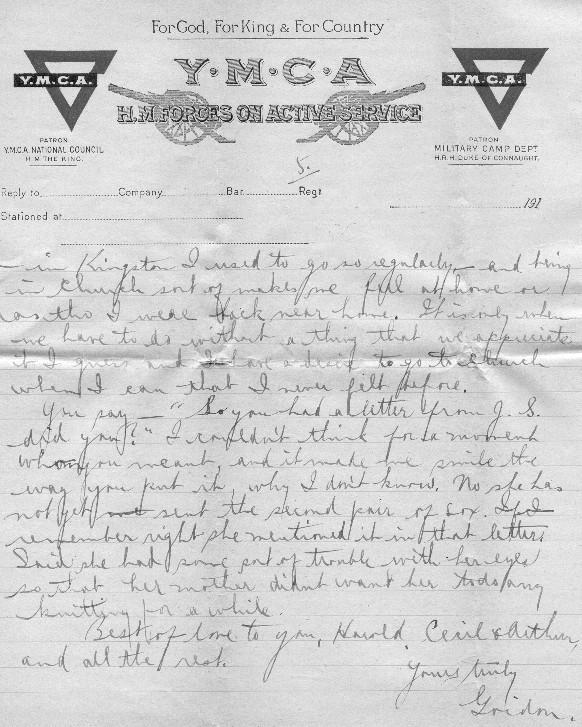 For God, For King & For Country
Y·M·C·A
H.M. FORCES ON ACTIVE SERVICE
Y.M.C.A.
Y.M.C.A.
PATRON
Y.M.C.A. NATIONAL COUNCIL
H.M. THE KING.
PATRON
MILITARY CAMP DEPT
H.R.H. DUKE OF CONNAUGHT.
5.
Reply to Company Bat. Regt
Stationed at
191
– in Kingston I used to go so regularly – and being
in church sort of makes me feel at home or
as tho I were back near home. It is only when
we have to do without a thing that we appreciate
it I guess and I have a desire to go to church
when I can that I never felt before.
You say – "So you had a letter from J. S.
did you?" I couldn't think for a moment
whom you meant, and it made me smile the
way you put it, why I don't know. No she has
not yet sent the second pair of sox. If I
remember right she mentioned it in that letter,
said she had some sort of trouble with her eyes
so that her mother didnt want her to do any
knitting for a while.
Best of love to you, Harold, Cecil & Arthur,
and all the rest.
Yours truly
Gordon.